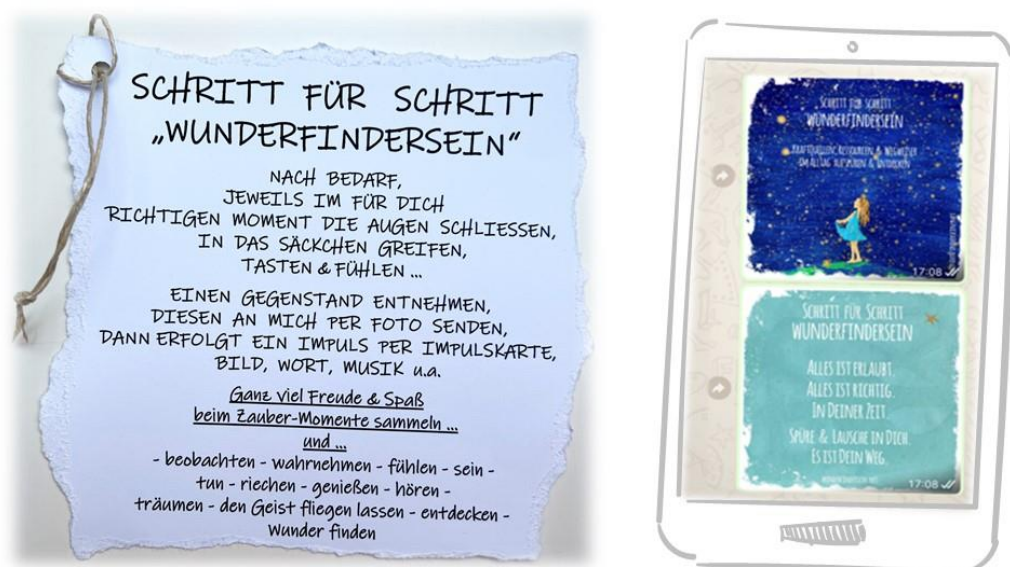 SCHRITT FÜR SCHRITT
„WUNDERFINDERSEIN“
NACH BEDARF,
JEWEILS IM FÜR DICH
RICHTIGEN MOMENT DIE AUGEN SCHLIESSEN,
IN DAS SÄCKCHEN GREIFEN,
TASTEN & FÜHLEN ...
EINEN GEGENSTAND ENTNEHMEN,
DIESEN AN MICH PER FOTO SENDEN,
DANN ERFOLGT EIN IMPULS PER IMPULSKARTE,
BILD, WORT, MUSIK u.a.
Ganz viel Freude & Spaß
beim Zauber-Momente sammeln ...
und ...
- beobachten - wahrnehmen - fühlen - sein -
tun - riechen - genießen - hören -
träumen - den Geist fliegen lassen - entdecken -
Wunder finden
SCHRITT FÜR SCHRITT
WUNDERFINDERSEIN
KRAFTQUELLEN, RESSOURCEN & WEGWEISER
IM ALLTAG & ENTDECKEN
17:08
SCHRITT FÜR SCHRITT
WUNDERFINDERSEIN
ALLES IST ERLAUBT.
ALLES IST RICHTIG.
IN DEINER ZEIT.
SPÜRE & LAUSCHE IN DICH.
ES IST DEIN WEG.
17:08